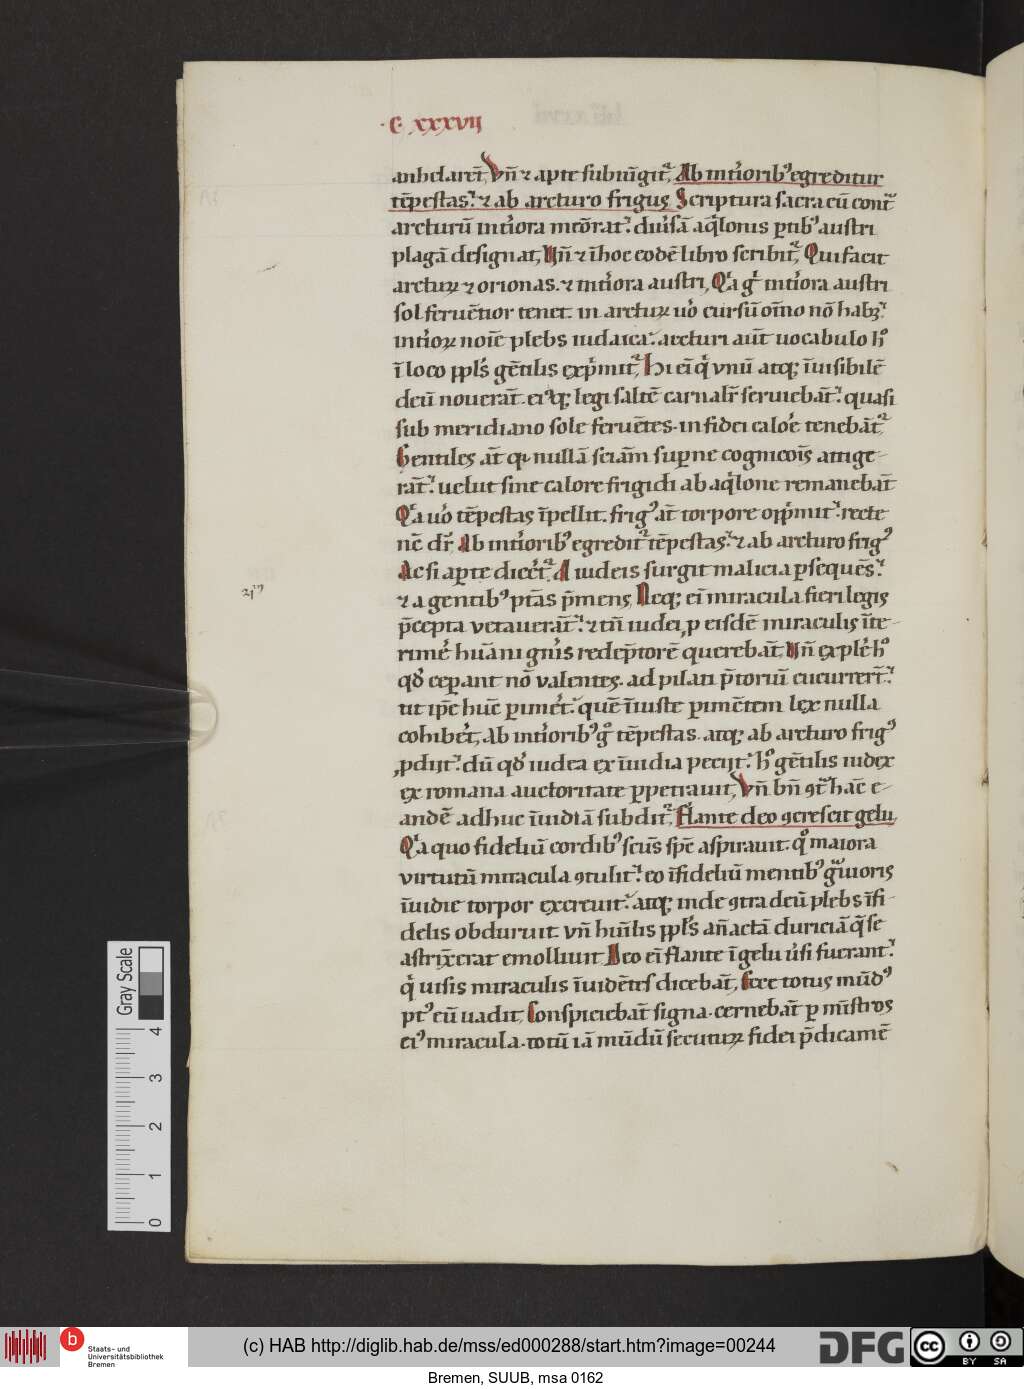 ·C· XXXVII
anhelaret̄, Vn̄ ⁊ apte subiūgit᷑, Ab int̓iorib᷒ egreditur
tēpestas. ⁊ ab arcturo frigus Scriptura sacra cū cont᷑
arcturū int̓iora mēorat᷑. diuisā aq̓lonis ꝑtib᷒ austri
plagā designat, Vn̄ ⁊ ī hoc eodē libro scribit᷑, Qui facit
arcturꝝ ⁊ orionas. ⁊ int̓iora austri, Qa g̓ int̓iora austri
sol feruētior tenet. in arcturꝝ uo᷎ cursū om̄o nō habꝫ.
int̓ioꝝ noīe plebs iudaica. arcturi aūt uocabulo h᷒
ī loco ppl̓s gētilis exp̓mit᷑, Hi eī q̓ vnū atqꝫ īuisibilē
deū nouerāt. ei᷒qꝫ legi saltē carnalr̄ seruiebāt. quasi
sub meridiano sole feruētes. in fidei calo᷎e tenebāt᷑
Gentiles āt qꝛ nullā sciam̄ suꝑne cognicoīs attige-
rāt. uelut sine calore frigidi ab aq̓lone remanebāt
Qa uo᷎ tēpestas īpellit. frig᷒ āt torpore opp̓mit. recte
nc̄ dr̄. Ab int̓iorib᷒ egredit᷑ tēpestas. ⁊ ab arcturo frig᷒
Ac si aꝑte dicet᷑. A iudeis surgit malicia ꝑsequēs.
⁊ a gentib᷒ ptās p̄mens, Neqꝫ eī miracula fieri legis
p̄cepta vetauerāt. ⁊ tn̄ iudei, ꝓ eisdē miraculis īte-
rime᷎ hūani gn̄is redēptorē querebāt, Vn̄ exple᷎ h᷒
qd᷎ ceꝑant nō valentes. ad pilati p̄toriū cucurrert̄.
ut ip̄e huc̄ ꝑimet᷎. quē īiuste ꝑimētem lex nulla
cohibet᷎, Ab int̓iorib᷒ g᷎ tēpestas. atqꝫ ab arcturo frig᷒
ꝓdijt. dū qd᷎ iudea ex īuidia pecijt. h᷒ gētilis iudex
ex romana auctoritate ꝑpetrauit, Vn̄ bn̄ ꝯt᷑ hāc e-
andē adhuc īuidiā subdit᷑. Flante deo ꝯcrescit gelu,
Qa quo fideliū cordib᷒ scūs sp̄c aspirauit. q᷎ maiora
virtutū miracula ꝯtulit. eo īfideliū mentib᷒ guioris
īuidie torpor excreuit. atqꝫ inde ꝯtra deū plebs īfi-
delis obduruit vn̄ hūilis ppl̓s an̄ actā duriciā q̄ se
astrīxerat emolliuit Deo eī flante ī gelu u᷎si fuerant.
q̓ uisis miraculis īuidētes dicebāt, Ecce totus mūd᷒
pt᷒ eū uadit, Conspiciebāt signa. cernebāt ꝑ mīstros
ei᷒ miracula. totū iā mūdū secuturꝝ fidei p̄dicamē
Gray Scale
4
3
2
1
0
b
Staats- und
Universitätsbibliothek
Bremen
(c) HAB http://diglib.hab.de/mss/ed000288/start.htm?image=00244
DFG
cc
BY SA
Bremen, SUUB, msa 0162